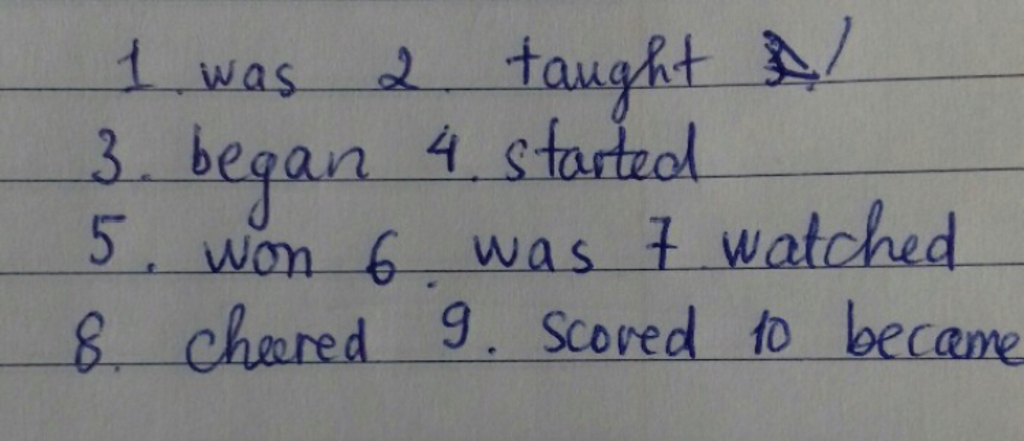 1. was 2. taught
3. began 4. started
5. won 6. was 7 watched
8. cheered 9. scored 10 became